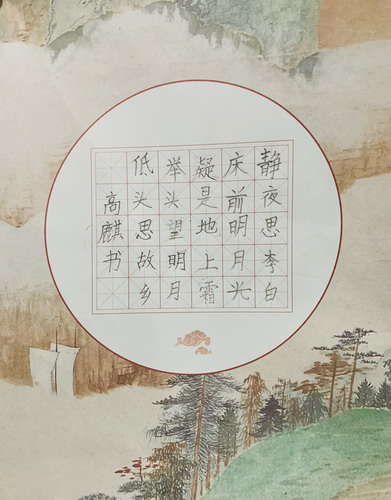 静夜思李白
床前明月光
疑是地上霜
举头望明月
低头思故乡
高麒书